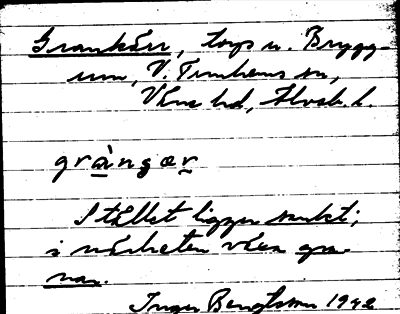 Grankärr, torp u. Brygg-
um, V. Tunhems sn,
Väne hd, Älvsb. l.
gràngær
Stället ligger sankt;
i närheten växa gra-
nar.
Inger Bengtsson 1942